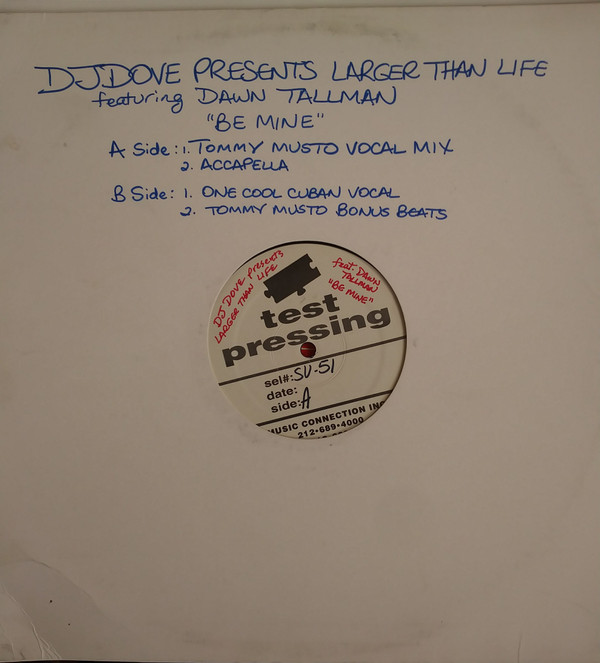 DJ DOVE PRESENTS LARGER THAN LIFE
featuring DAWN TALLMAN
"BE MINE"
A Side: 1. TOMMY MUSTO VOCAL MIX
2. ACCAPELLA
B Side: 1. ONE COOL CUBAN VOCAL
2. TOMMY MUSTO BONUS BEATS
DJ DOVE Presents
LARGER THAN LIFE
feat. DAWN
TALLMAN
"BE MINE"
test
pressing
sel#: SU-51
date:
side: A
MUSIC CONNECTION INC
212-689-4000